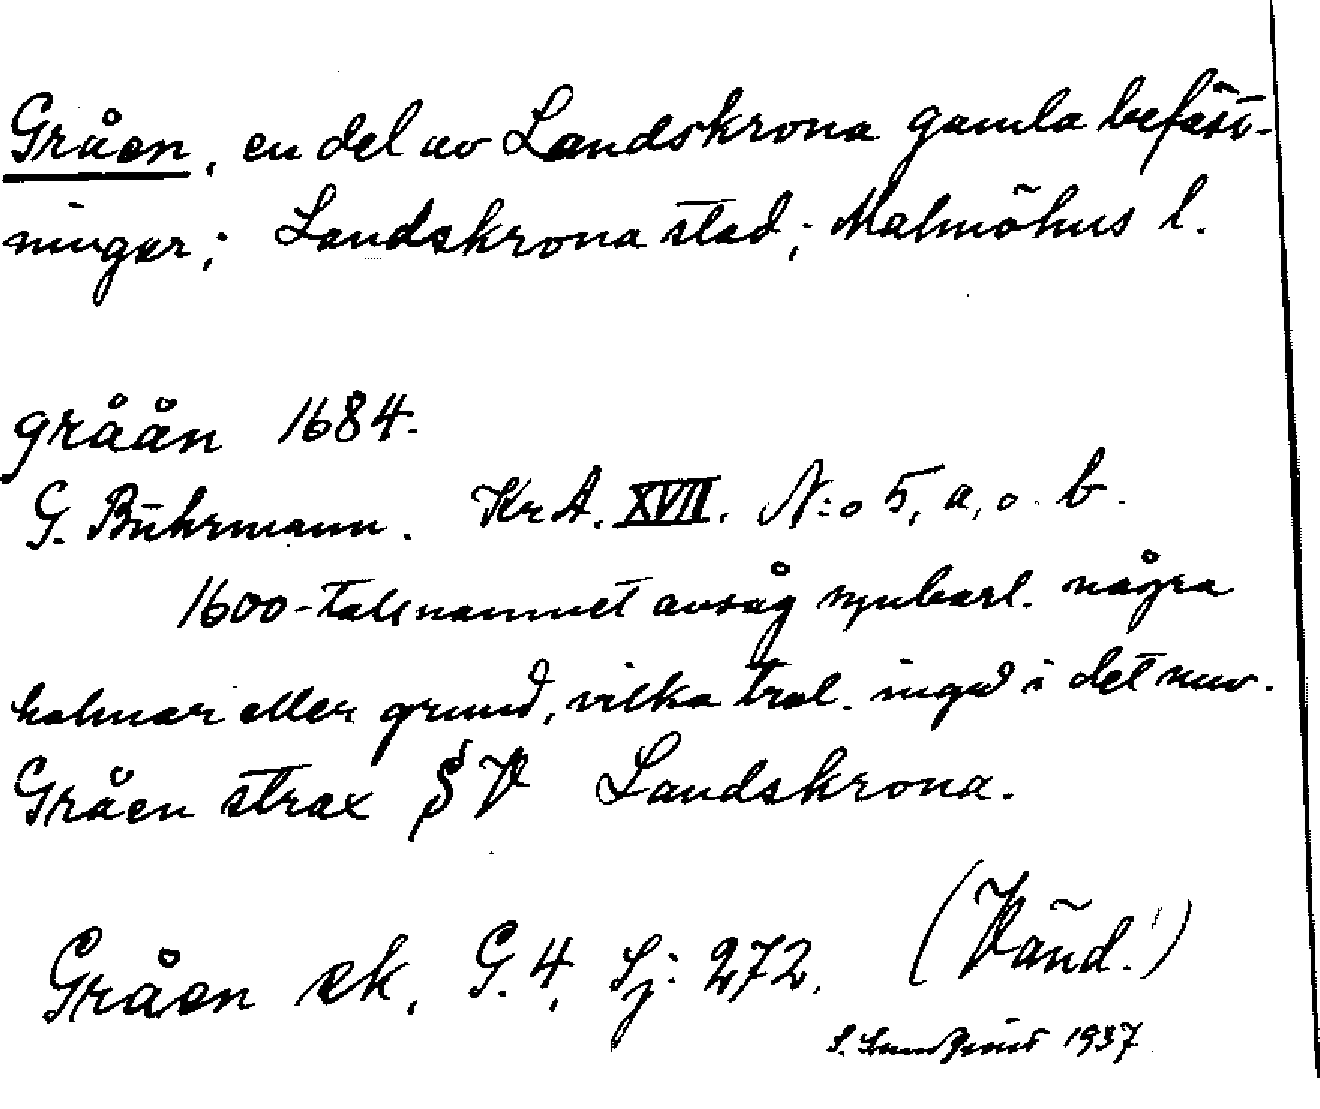 Gråen, en del av Landskrona gamla befäst-
ningar; Landskrona stad; Malmöhus l.
gråån 1684.
G. Bührmann. KrA. XVII. N:o 5, a, o. b.
1600-talsnamnet avsåg synbarl. några
holmar eller grund, vilka trol. ingå i det nuv.
Gråen strax S V Landskrona.
Gråen ek. G. 4. Sj: 272. (Vänd!)
S. 1937